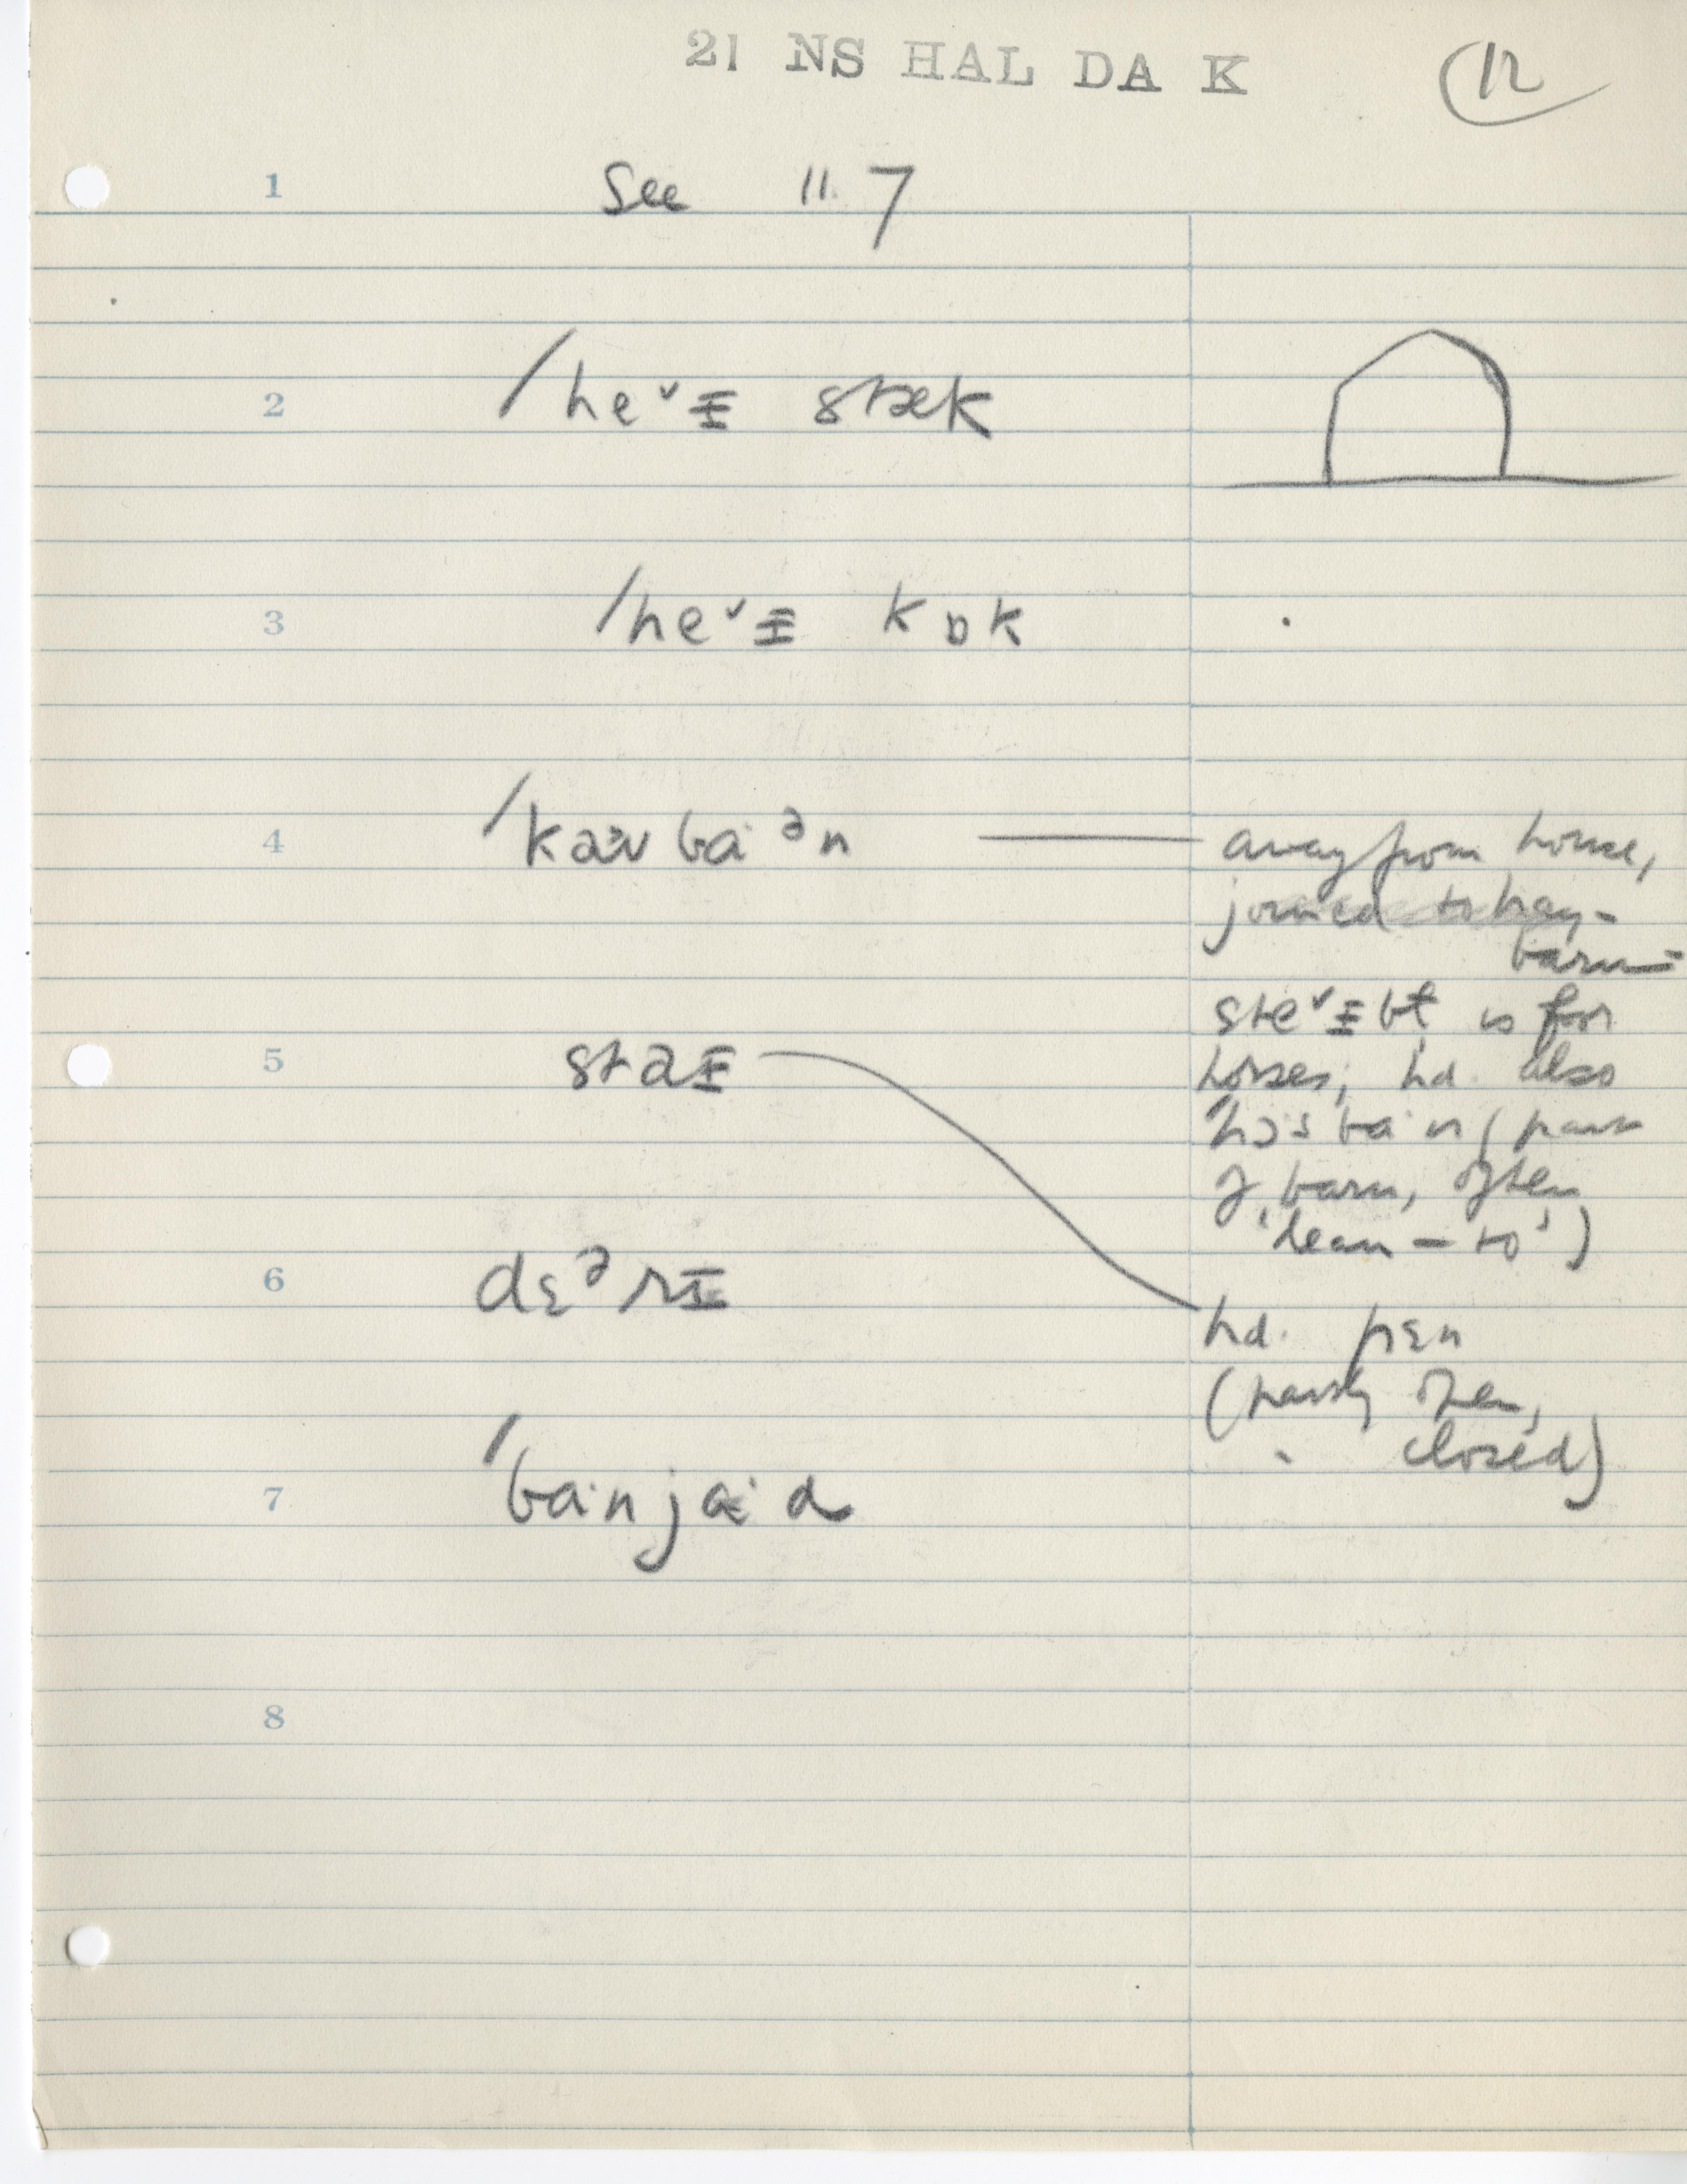 21 NS HAL DA K
12
1 See 11.7
2 /heˇɪ stæk
3 /heˇɪ kɒk
4 /kaʊ ba ᵊn
away from house,
joined to hay-
barn
steˇɪbɫ is for
horses; hd. also
hɔˑs baˑn (part
of barn, often
'lean-to')
5 staɪ
hd. pɛn
(partly open,
" closed)
6 dɛᵊrɪ
7 /baˑnjaˑd
8